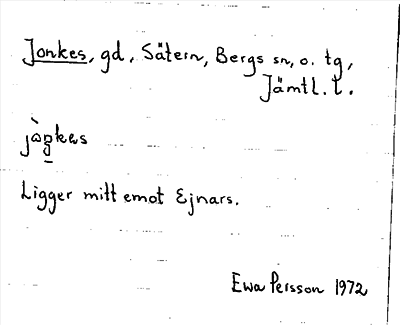 Jonkes, gd, Sätern, Bergs sn, o. tg,
Jämtl. l.
Ligger mitt emot Ejnars.
Ewa Persson 1972